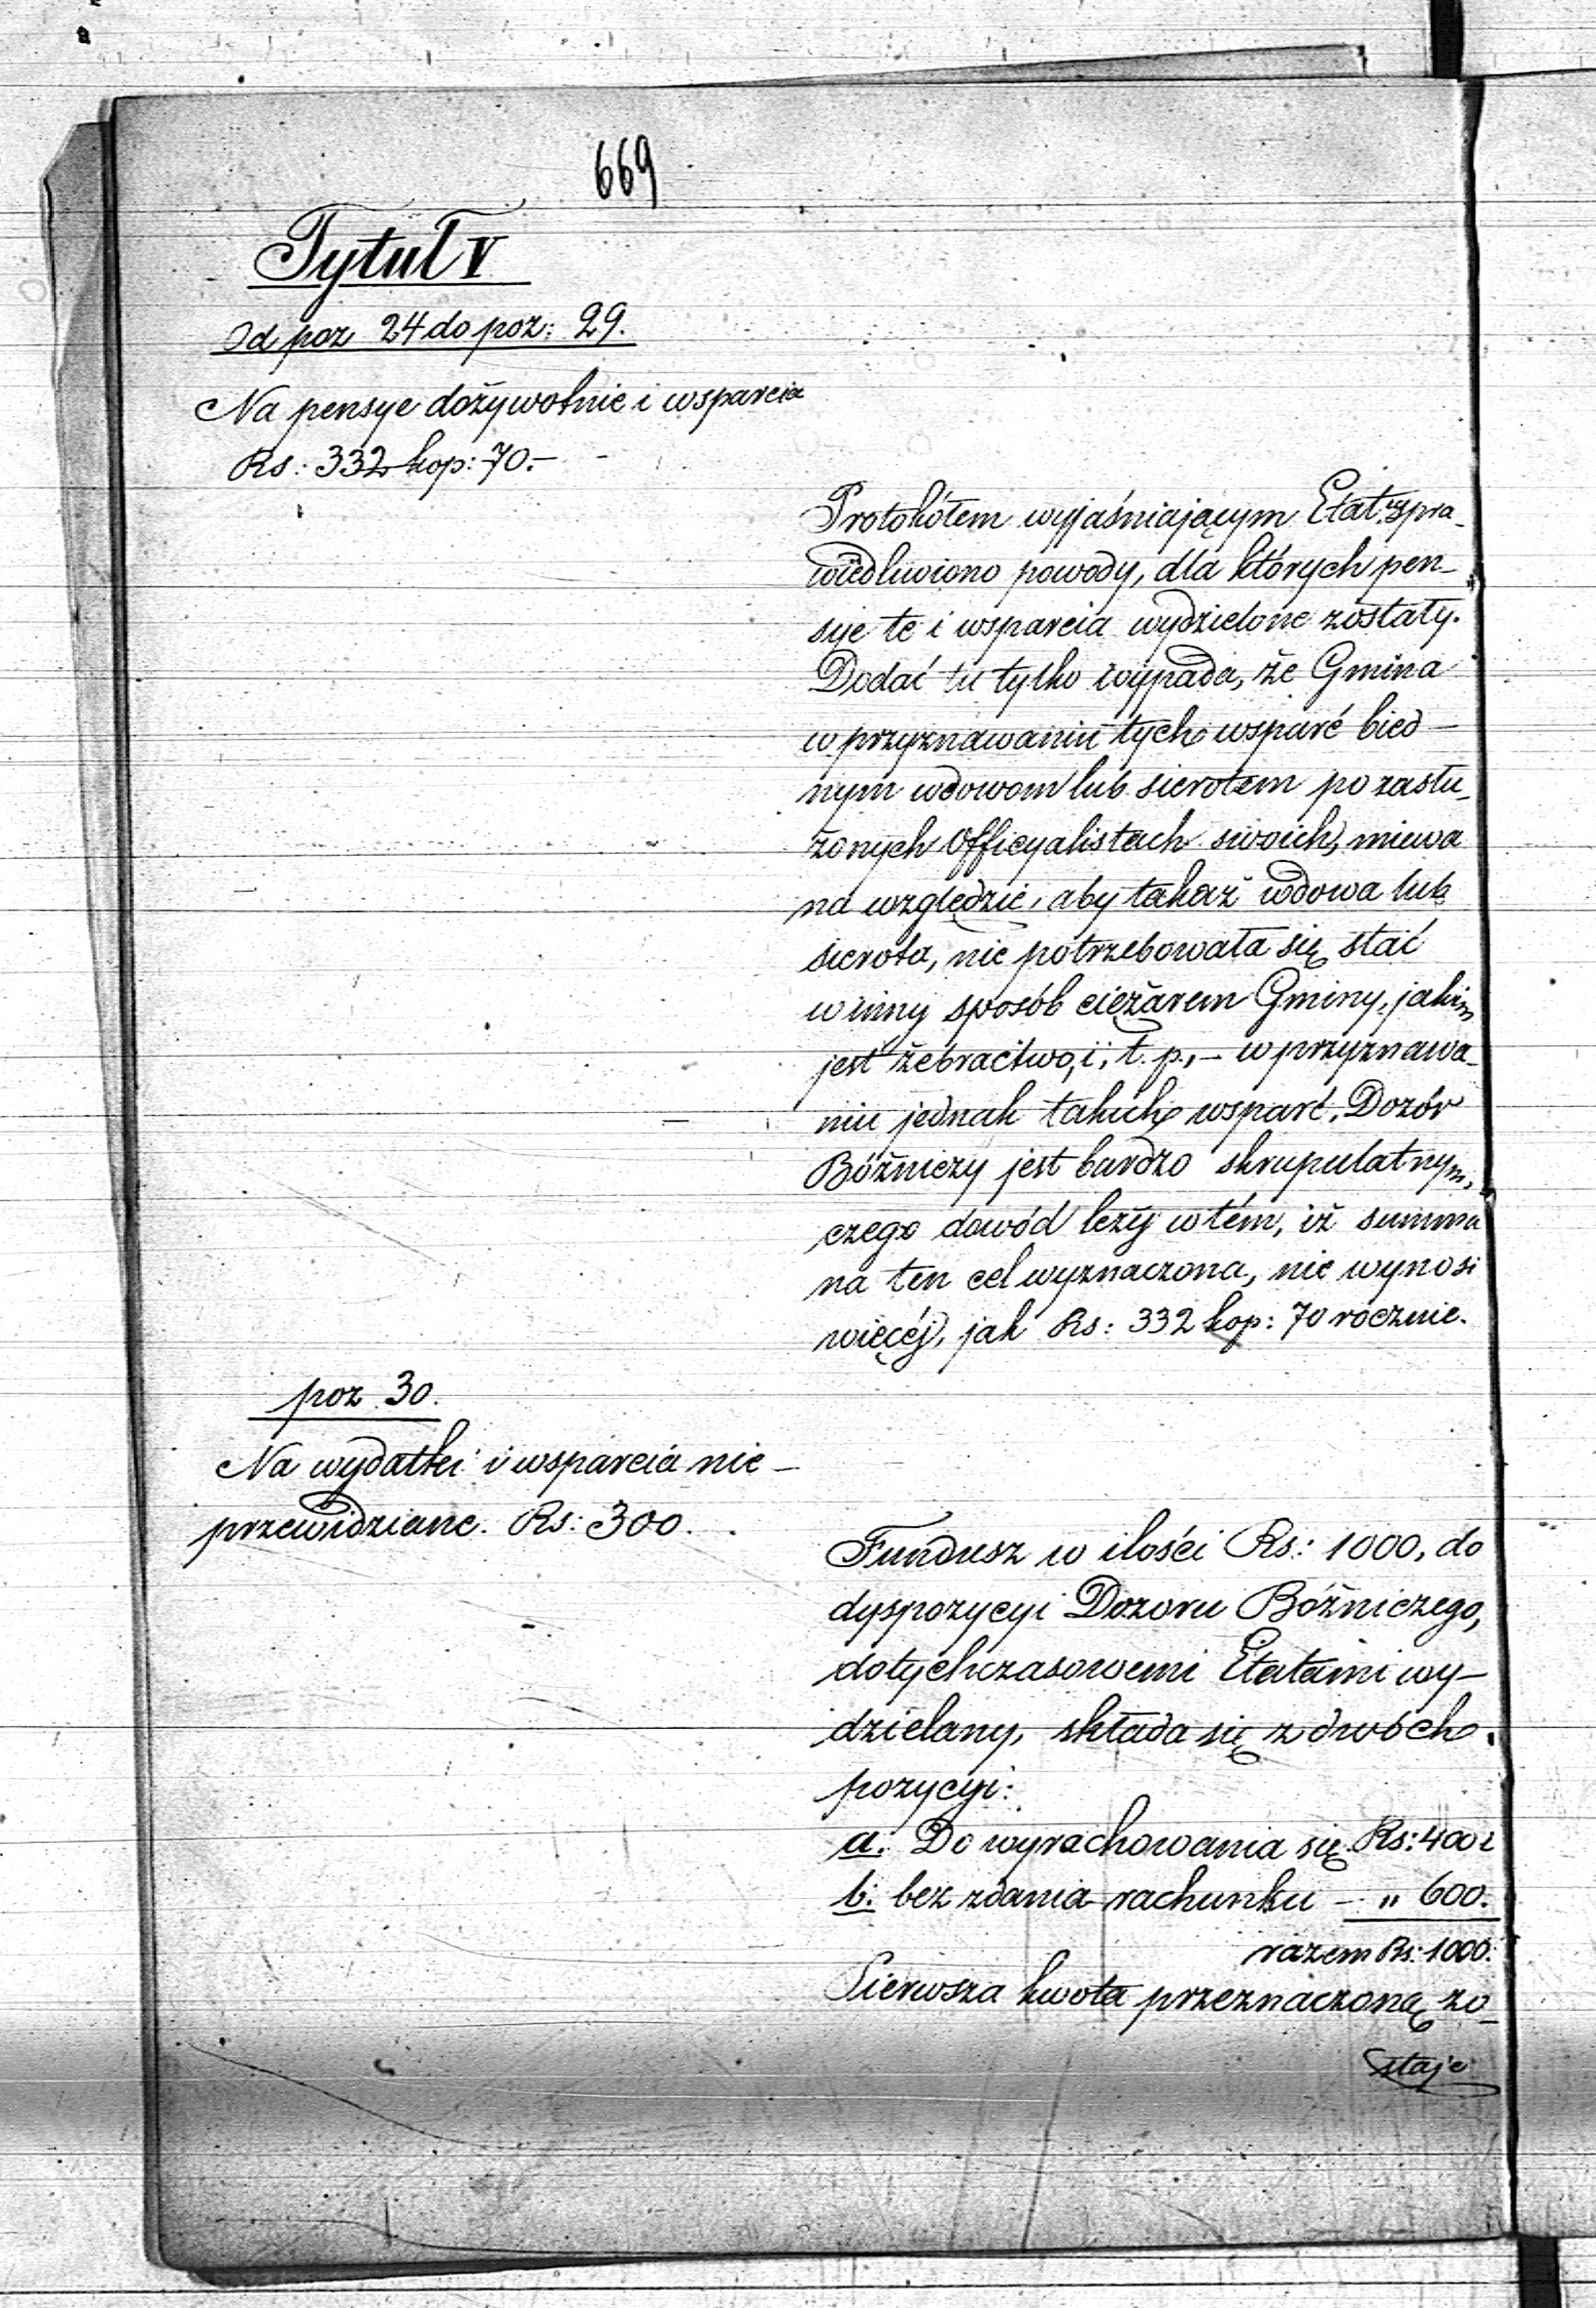 669
Tytuł V
Od poz 24 do poz: 29.
Na pensye dożywotnie i wsparcia
Rs: 332 kop: 70.-
Protokółem wyjaśniającym Etat, uspra-
wiedliwiono powody, dla których pen-
sye te i wsparcia wydzielone zostały.
Dodać tu tylko wypada, że Gmina
w przyznawaniu tych wsparć bied-
nym wdowom lub sierotom po zasłu-
żonych Officyalistach swoich, miewa
na względzie, aby takaż wdowa lub
sierota, nie potrzebowała się stać
w inny sposób ciężarem Gminy, jakim
jest żebractwo, i, t. p., - w przyznawa-
niu jednak takich wsparć, Dozór
Bóźniczy jest bardzo skrupulatnym,
czego dowód leży w tém, iż summa
na ten cel wyznaczona, nie wynosi
więcéj, jak Rs: 332 kop: 70 rocznie.
poz 30.
Na wydatki i wsparcia nie-
przewidziane. Rs: 300.
Fundusz w ilości Rs: 1000, do
dyspozycyi Dozoru Bóźniczego,
dotychczasowemi Etatami wy-
dzielany, składa się z dwóch
pozycyi:
a. Do wyrachowania się Rs: 400 i
b. bez zdania rachunku - " 600.
razem Rs: 1000.
Pierwsza kwota przeznaczoną zo-
staje